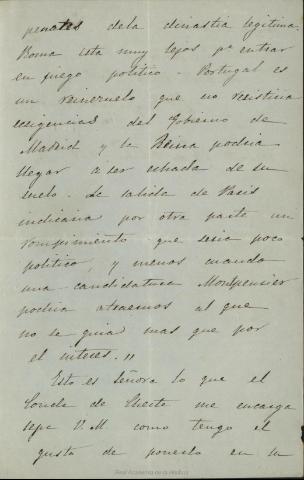 penates dela dinastia legitima.
Roma esta muy lejos pª entrar
en juego politico. Portugal es
un reinezuelo que no resistiria
exigencias del Gobierno de
Madrid y la Reina podria
llegar a ser echada de su
suelo. La salida de Paris
indicaria por otra parte un
rompimiento que seria poco
politico, y menos cuando
una candidatura Montpensier
podria atraernos al que
no se guia mas que por
el interes.,,
Esto es Señora lo que el
Conde de Cheste me encarga
sepa V.M como tengo el
gusto de ponerlo en su
Real Academia de la Historia